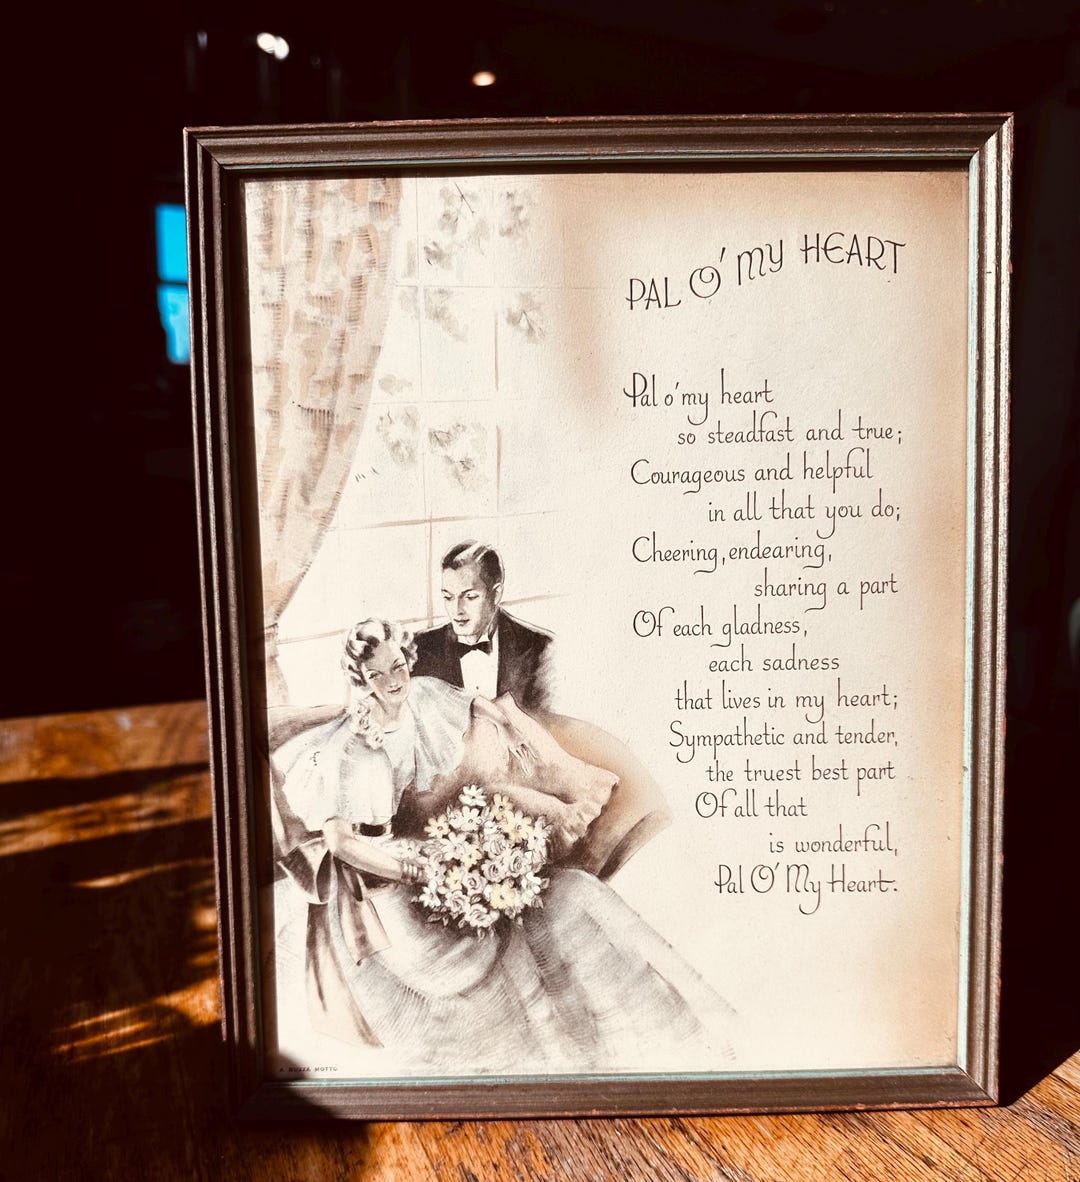 PAL O' MY HEART
Pal o' my heart
so steadfast and true;
Courageous and helpful
in all that you do;
Cheering, endearing,
sharing a part
Of each gladness,
each sadness
that lives in my heart;
Sympathetic and tender,
the truest best part
Of all that
is wonderful,
Pal O' My Heart.
A BUZZA MOTTO